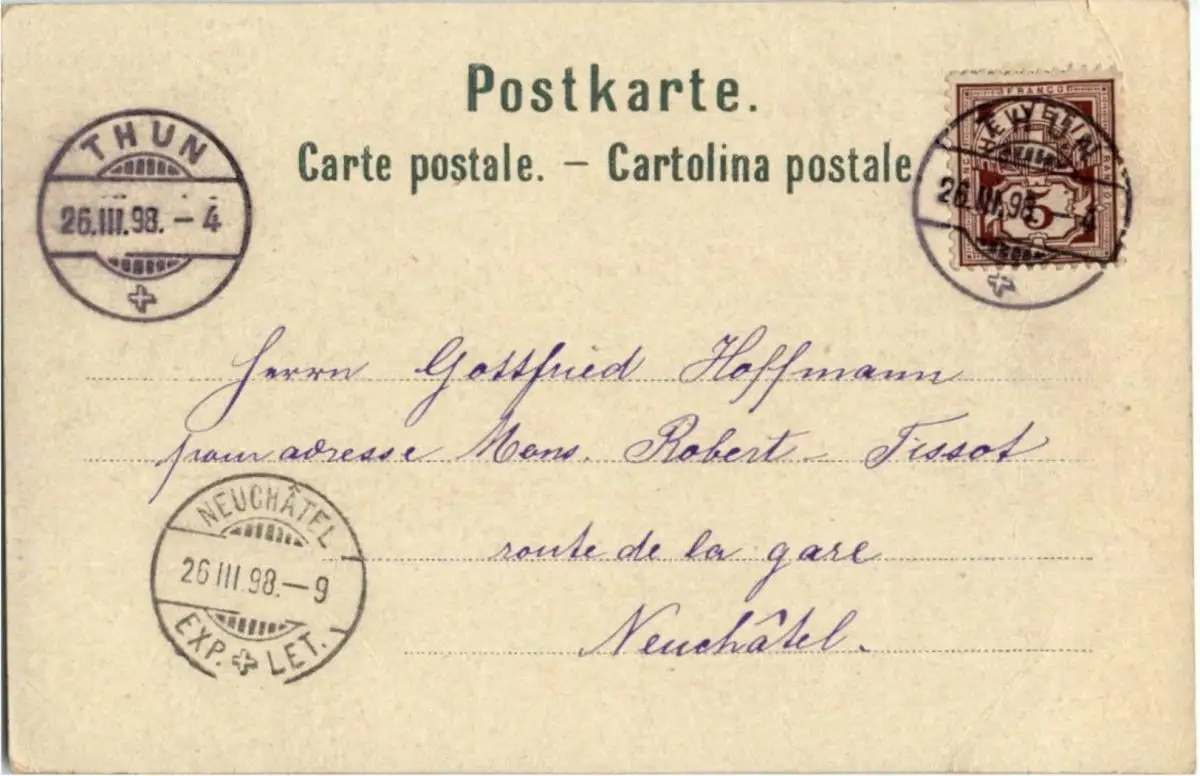 Postkarte.
Carte postale. – Cartolina postale
THUN
26.III.98. – 4
FRANCO
HELVETIA
26.III.98. – 4
5
Herrn Gottfried Hoffmann
pour adresse Mons. Robert - Tissot
route de la gare
Neuchâtel.
NEUCHÂTEL
26 III.98. – 9
EXP. LET.